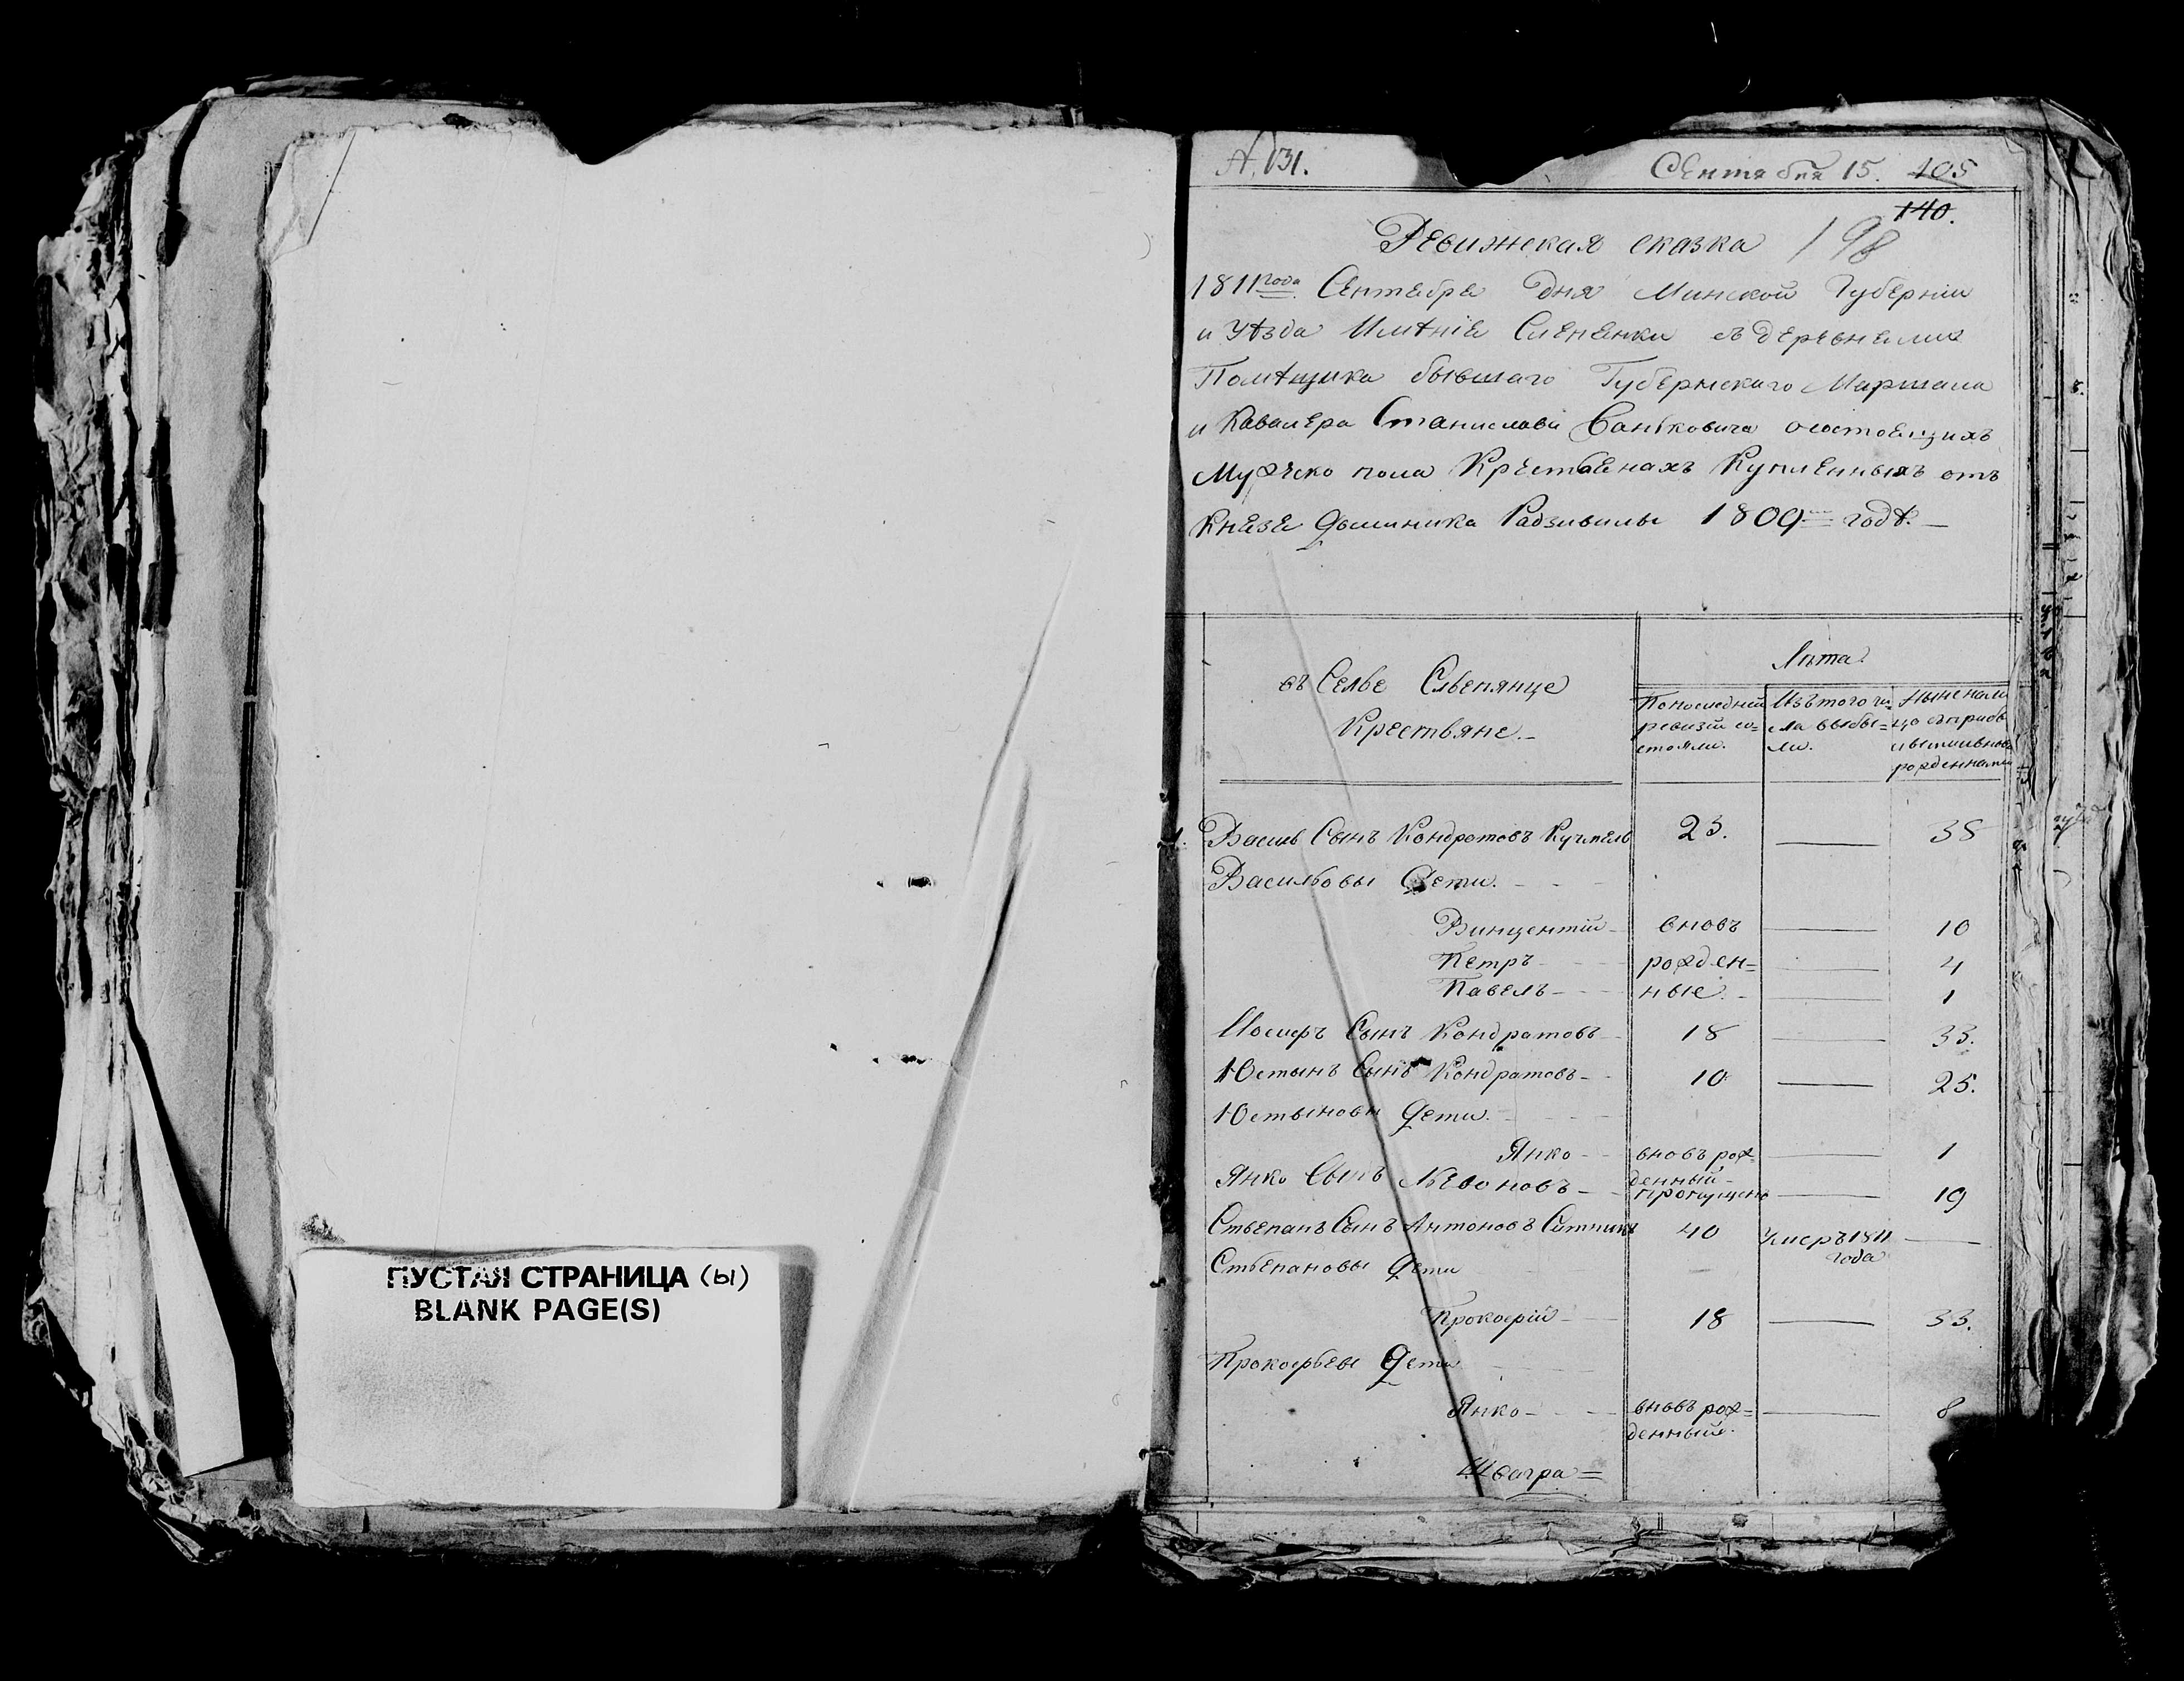 ПУСТАЯ СТРАНИЦА (ы)
BLANK PAGE(S)
А. 131.
Сентября 15. 105
140.
Ревижская сказка 198
1811 года Сентебре дня Минской Губерніи
и Уѣзда Имѣніе Слепенки съ деревнеми
Помѣщика бывшаго Губернскаго Маршала
и Кавалера Станислава Ваньковича осостоещихъ
Мужеско пола Крестьенахъ Купленныхъ отъ
Князе Доминика Радзивилы 1809 годѣ.
въ Сельѣ Сльепянце
Крестьяне.
Лѣта
Попоследней ревизіи со=стояли.
Изътого числа выбы=ли.
Ныне нали
цо съприб
вновь
рожденными
1. Василь Сынъ Кондратовъ Кучмель 23. — 38
Васильовы Дети.
Винцентій вновъ — 10
Петръ рожден= — 4
Павелъ ные — 1
Иосифъ Сынъ Кондратовъ 18 — 33.
Юстынъ Сынъ Кондратовъ 10 — 25.
Юстыновы Дети.
Янко вновъ рож=денный — 1
Янко Сынъ Льевоновъ пропущенъ — 19
Стьепанъ Сынъ Антоновъ 40 Умеръ 1811 года —
Стьепановы Дети
Прокофій 18 — 33.
Прокофьевы Дети
Янко вновъ рож=денный — 8
Швагра=